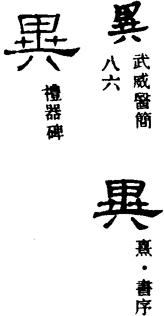 異
武威醫簡
八六
異
熹・書序
異
禮器碑